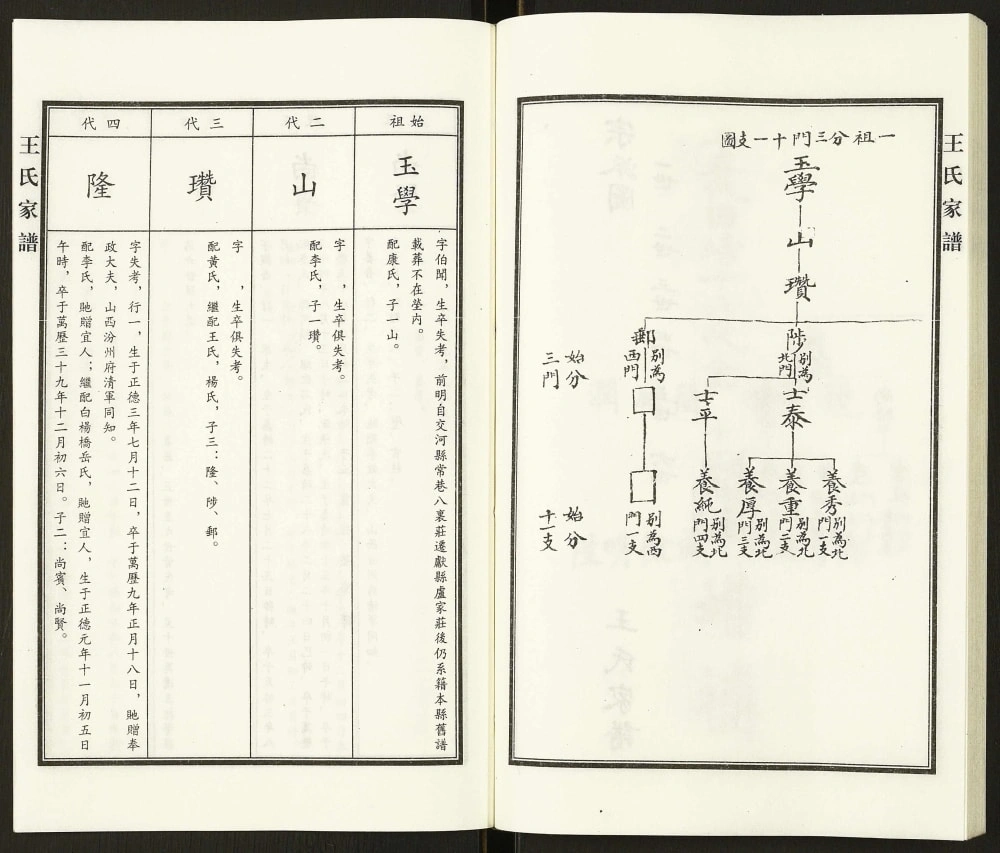 王氏家譜
一祖分三門十一支圖
玉學
山
瓚
陟
別為
北門
郵
別為
西門
始分
三門
士泰
士平
養秀
別為北
門一支
養重
別為北
門二支
養厚
別為北
門三支
養純
別為北
門四支
別為西
門一支
始分
十一支
始祖
玉學
字伯聞，生卒失考，前明自交河縣常巷八裏莊遷獻縣盧家莊後仍系籍本縣舊譜
載葬不在塋內。
配康氏，子一山。
二代
山
字　，生卒俱失考。
配李氏，子一瓚。
三代
瓚
字　，生卒俱失考。
配黃氏，繼配王氏，楊氏，子三：隆、陟、郵。
四代
隆
字失考，行一，生于正德三年七月十二日，卒于萬歷九年正月十八日，貤贈奉
政大夫，山西汾州府清軍同知。
配李氏，貤贈宜人；繼配白楊橋岳氏，貤贈宜人，生于正德元年十一月初五日
午時，卒于萬歷三十九年十二月初六日。子二：尚賓、尚賢。
王氏家譜